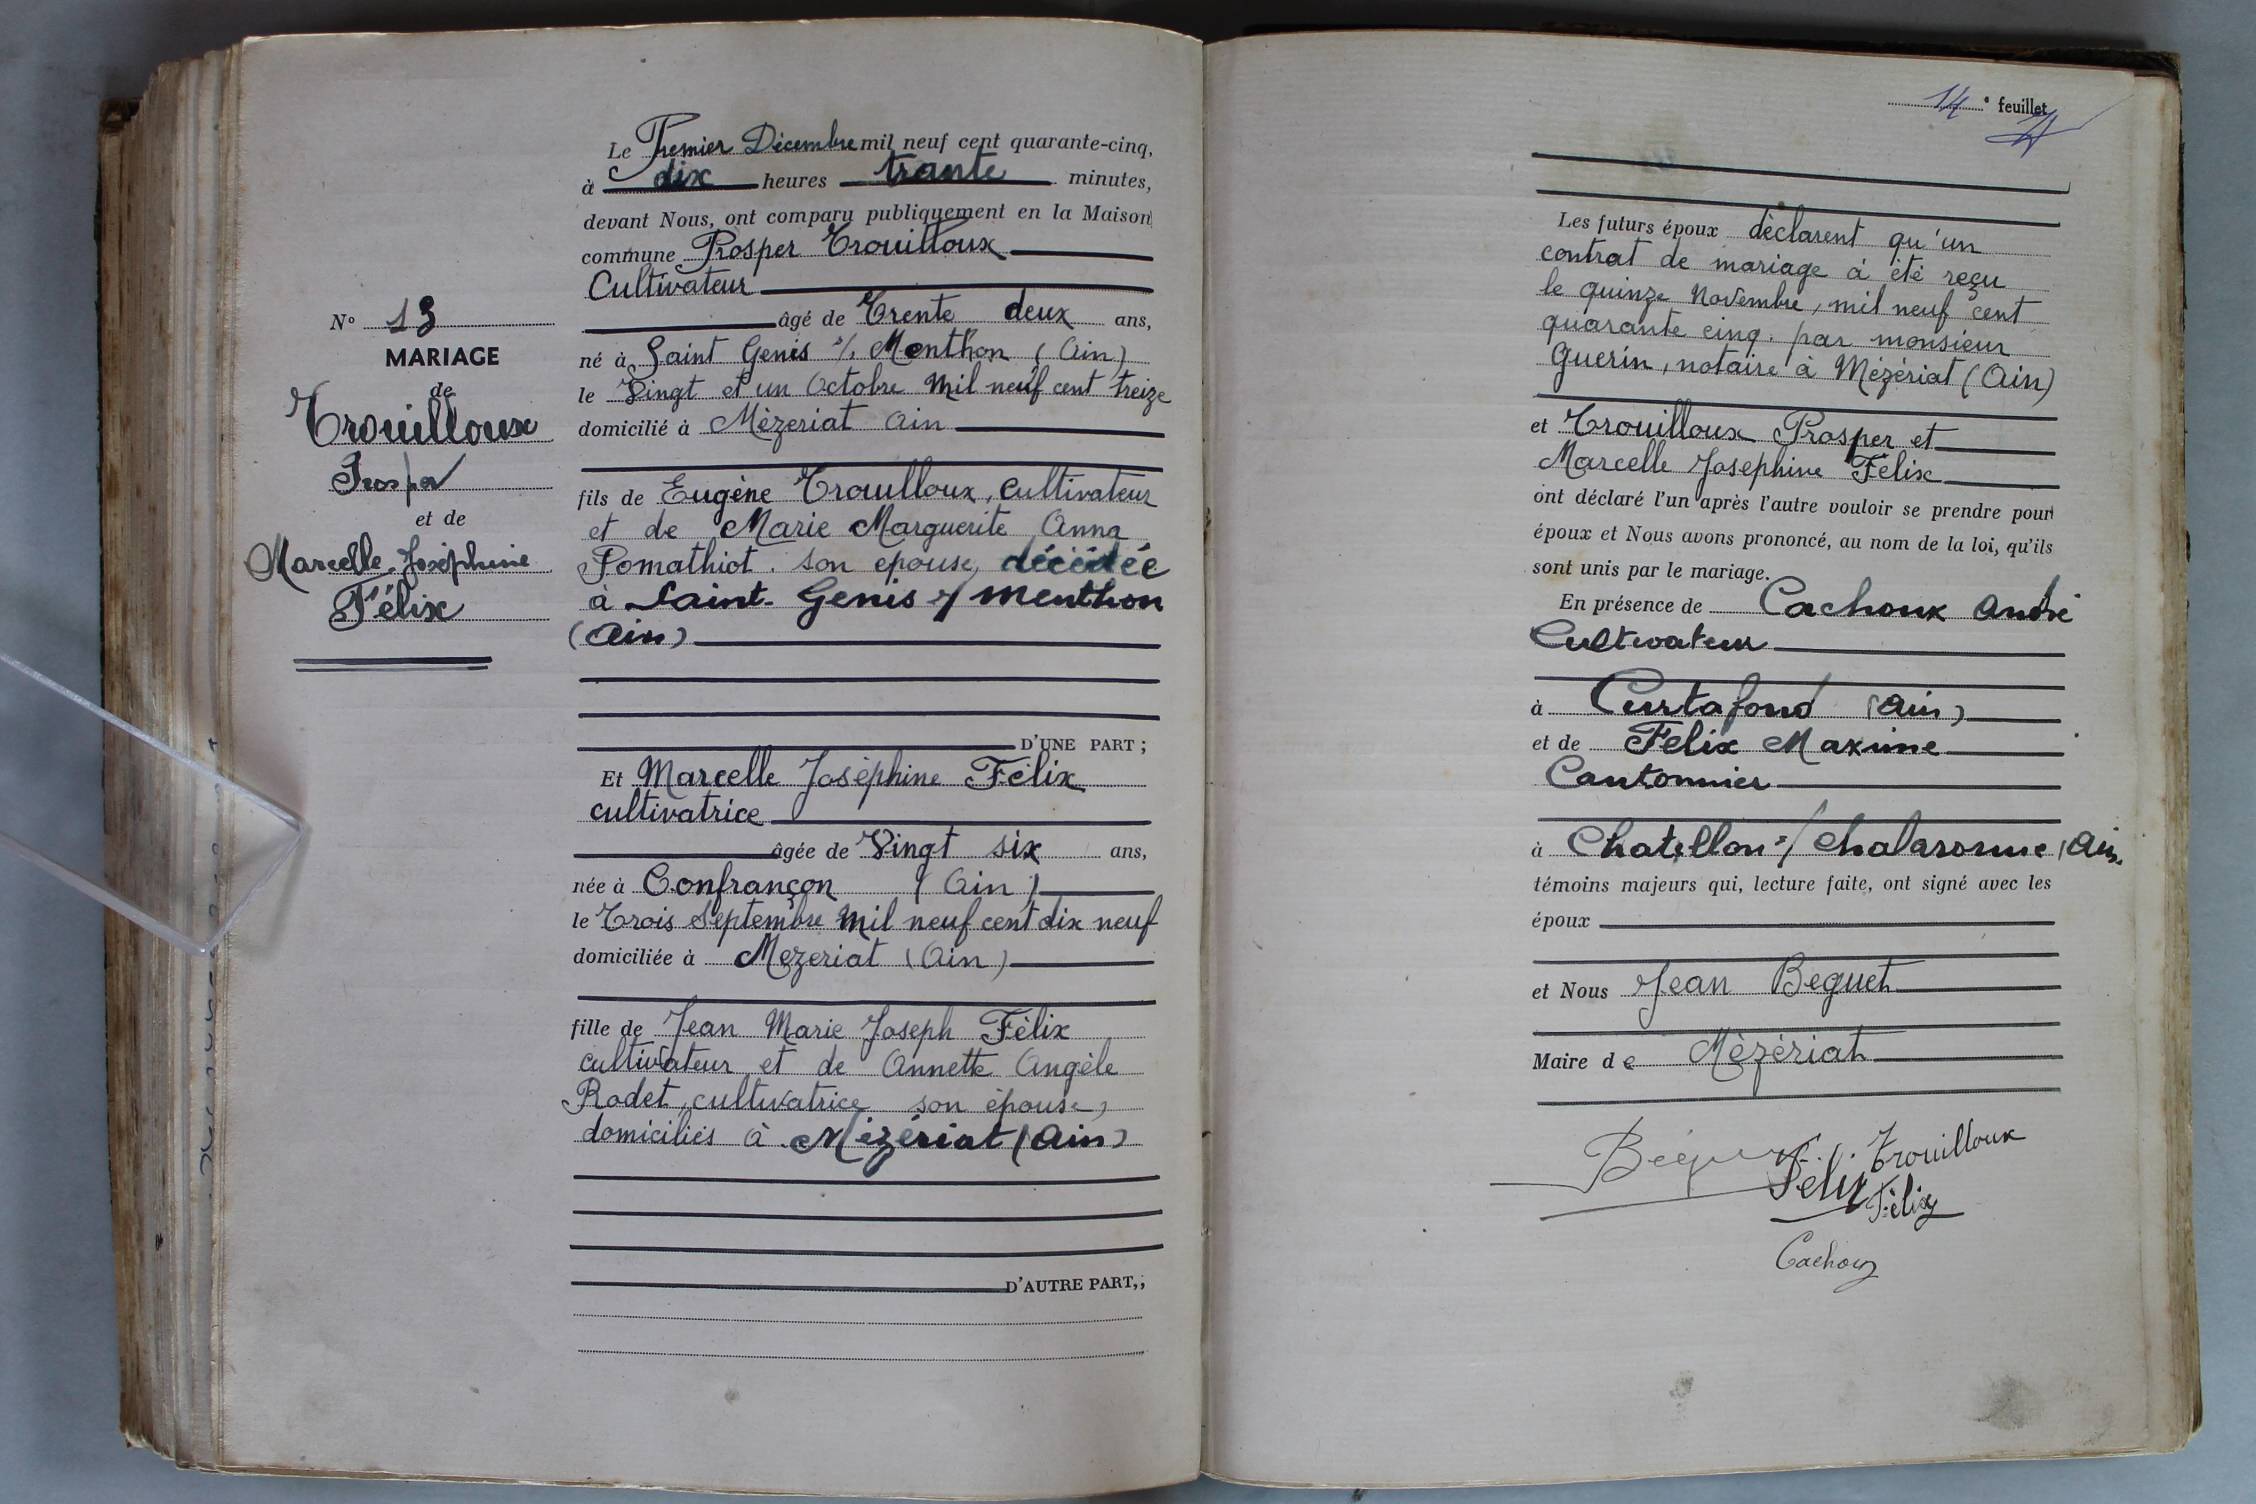 N° 13
MARIAGE
de
Trouilloux
Prosper
et de
Marcelle Joséphine
Félix
Le Premier Décembre mil neuf cent quarante-cinq,
à dix heures trante minutes,
devant Nous, ont comparu publiquement en la Maison
commune Prosper Trouilloux
Cultivateur
âgé de Trente deux ans,
né à Saint Genis s/ Menthon (Ain)
le Vingt et un Octobre Mil neuf cent treize
domicilié à Mèzeriat Ain
fils de Eugène Trouilloux, cultivateur
et de Marie Marguerite Anna
Pomathiot. son epouse, décédée
à Saint-Genis s/ Menthon
(Ain)
D'UNE PART ;
Et Marcelle Joséphine Félix
cultivatrice
âgée de Vingt six ans,
née à Confrançon (Ain)
le Trois Septembre Mil neuf cent dix neuf
domiciliée à Mezeriat (Ain)
fille de Jean Marie Joseph Félix
cultivateur et de Annette Angèle
Rodet, cultivatrice son épouse,
domiciliés à Mézériat (Ain)
D'AUTRE PART,;
14e feuillet
Les futurs époux déclarent qu'un
contrat de mariage à été reçu
le quinze Novembre, mil neuf cent
quarante cinq. par monsieur
Guerin, notaire à Mézériat (Ain)
et Trouilloux Prosper et
Marcelle Josephine Félix
ont déclaré l'un après l'autre vouloir se prendre pour
époux et Nous avons prononcé, au nom de la loi, qu'ils
sont unis par le mariage.
En présence de Cachoux André
Cultivateur
à Curtafond (Ain)
et de Félix Maxime
Cantonnier
à Chatillon s/ Chalaronne (Ain.
témoins majeurs qui, lecture faite, ont signé avec les
époux
et Nous Jean Beguet
Maire de Mèzériat
Béguet Félix Trouilloux
Félix
Cachoux